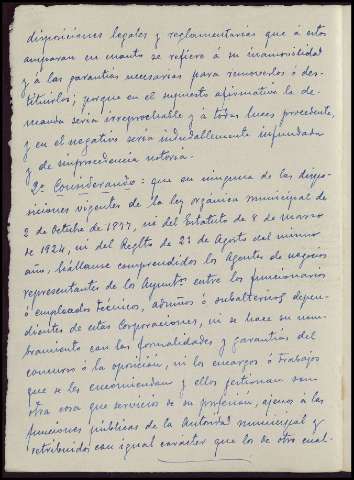 disposiciones legales y reglamentarias que á estos
amparan en cuanto se refiere á su inamovilidad
y á las garantías necesarias para removerlos ó des-
tituirlos; porque en el supuesto afirmativo la de-
manda sería irreprochable y á todas luces procedente,
y en el negativo sería indudablemente infundada
y de improcedencia notoria.
2º Considerando: que en ninguna de las dispo-
siciones vigentes de la ley orgánica municipal de
2 de Octubre de 1877, ni del Estatuto de 8 de marzo
de 1924, ni del Reglto de 23 de Agosto del mismo
año, hállanse comprendidos los Agentes de negocios
representantes de los Ayuntos entre los funcionarios
ó empleados técnicos, admños ó subalternos depen-
dientes de estas Corporaciones, ni se hace su nom-
bramiento con las formalidades y garantías del
concurso ó la oposición, ni los encargos ó trabajos
que se les encomiendan y ellos gestionan son
otra cosa que servicios de su profesión, ajenos á las
funciones públicas de la Autoridad municipal y
retribuidos con igual carácter que los de otro cual-